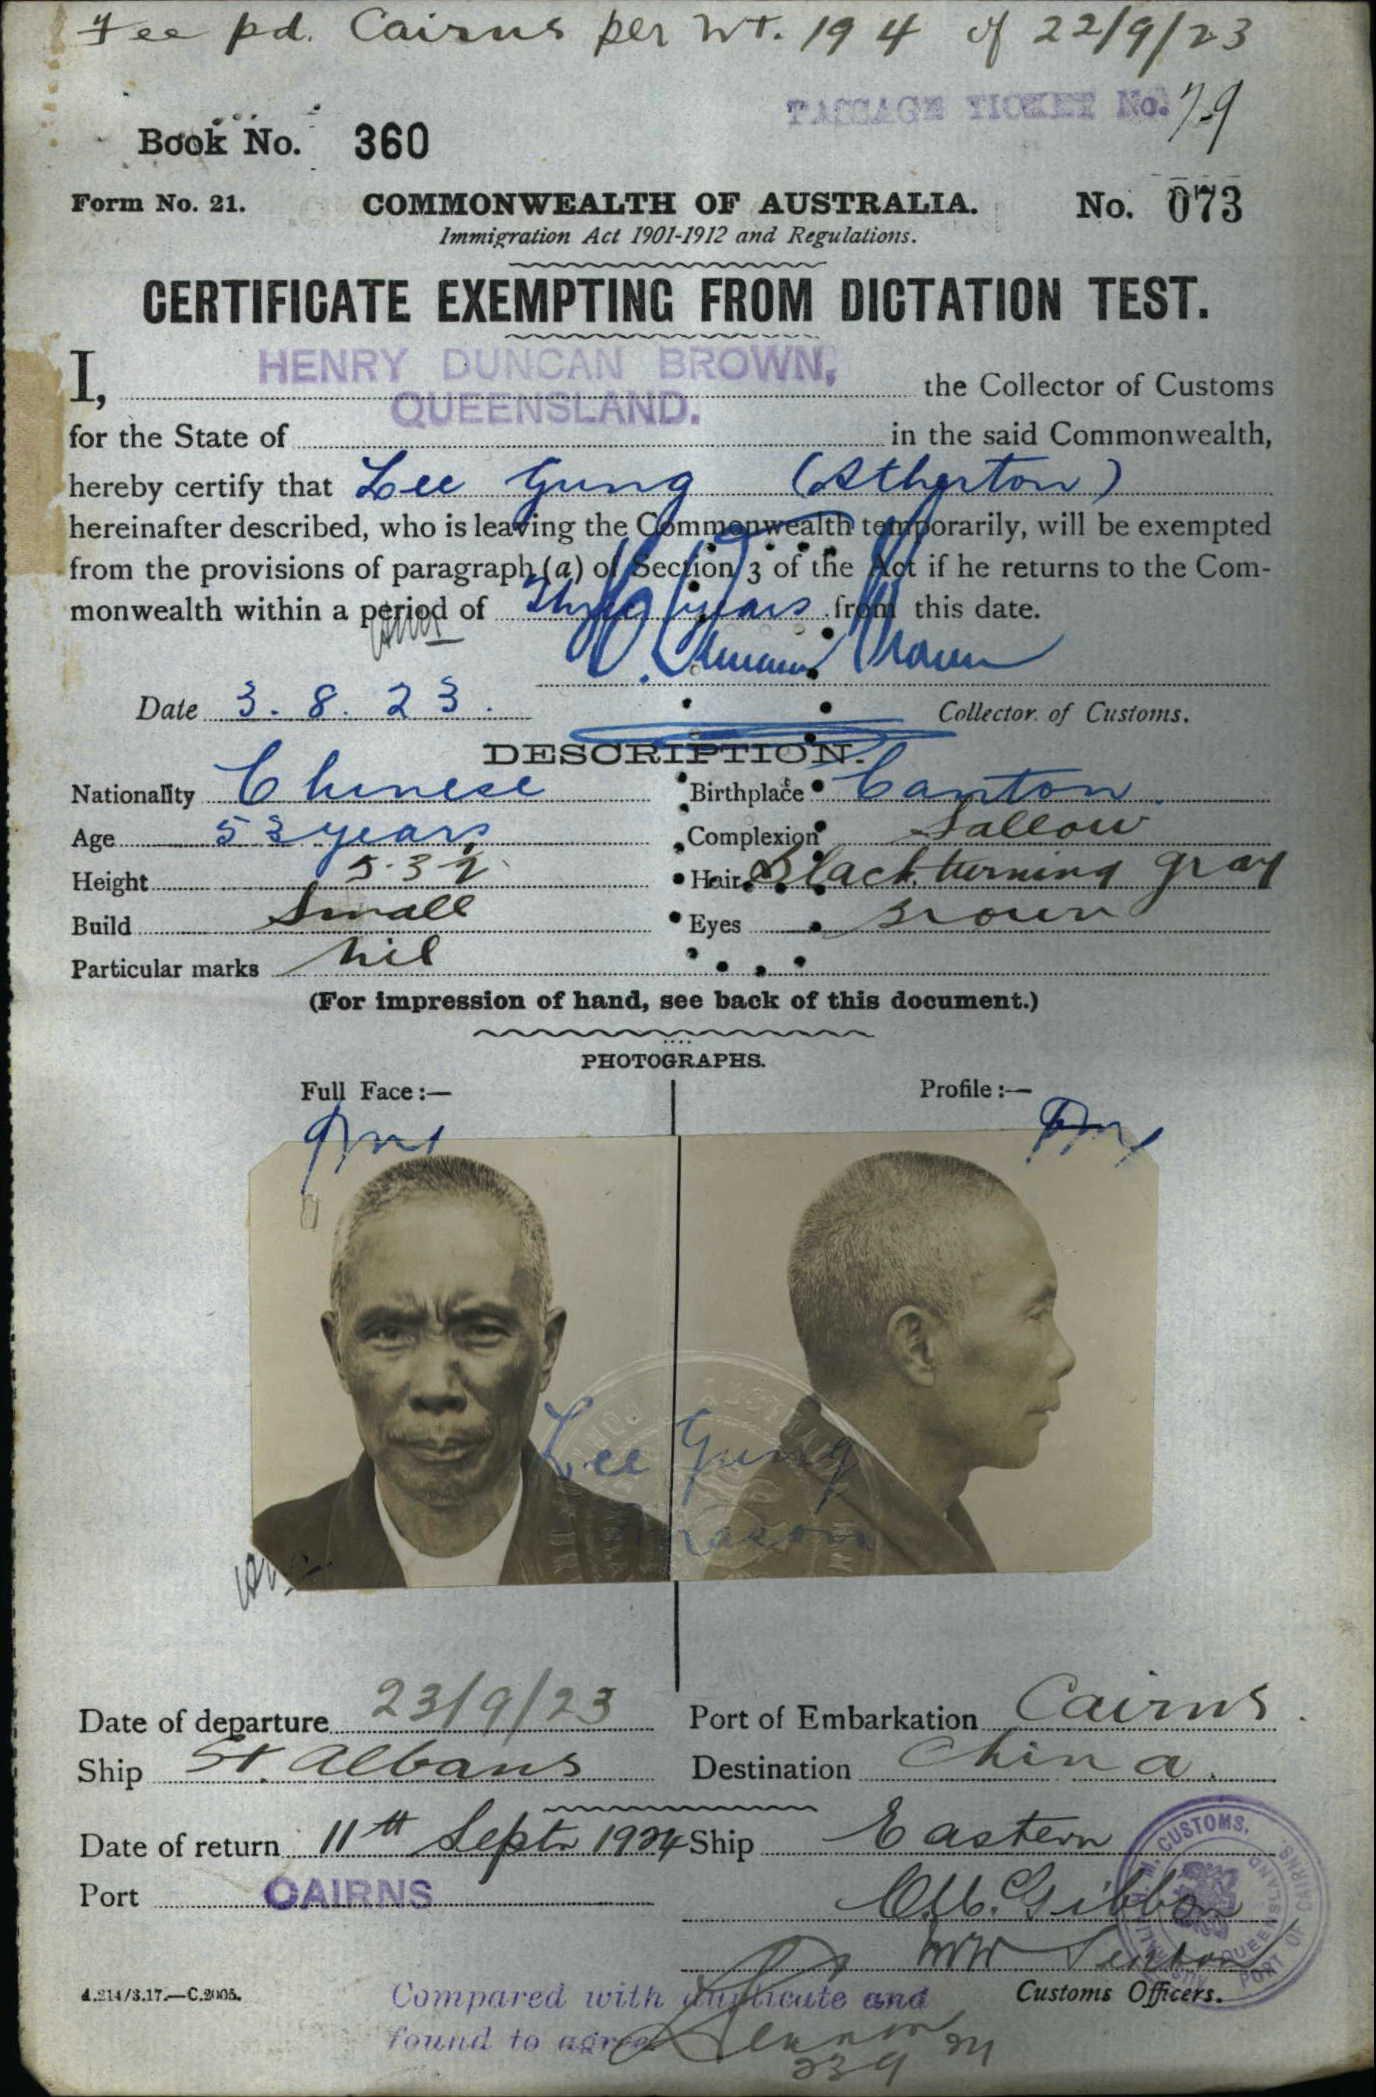 Fee pd. Cairns per Wt. 194 of 22/9/23
PASSAGE TICKET No. 79
Book No. 360
Form No. 21. COMMONWEALTH OF AUSTRALIA. No. 073
Immigration Act 1901-1912 and Regulations.
CERTIFICATE EXEMPTING FROM DICTATION TEST.
I, HENRY DUNCAN BROWN, the Collector of Customs
for the State of QUEENSLAND. in the said Commonwealth,
hereby certify that Lee Gung (Atherton)
hereinafter described, who is leaving the Commonwealth temporarily, will be exempted
from the provisions of paragraph (a) of Section 3 of the Act if he returns to the Com-
monwealth within a period of Three years from this date.
H. Duncan Brown
Date 3. 8. 23. Collector of Customs.
DESCRIPTION.
Nationality Chinese Birthplace Canton.
Age 53 years Complexion Sallow
Height 5.3½ Hair Black turning gray
Build Small Eyes Brown
Particular marks nil
(For impression of hand, see back of this document.)
PHOTOGRAPHS.
Full Face :— Profile :—
Lee Gung
Date of departure 23/9/23 Port of Embarkation Cairns.
Ship St. Albans Destination China.
Date of return 11th Septr 1924 Ship Eastern
Port CAIRNS
Customs Officers.
H.M. CUSTOMS, QUEENSLAND PORT OF CAIRNS. AUSTRALIA
4.214/3.17.—C.2005.
Compared with duplicate and
found to agree